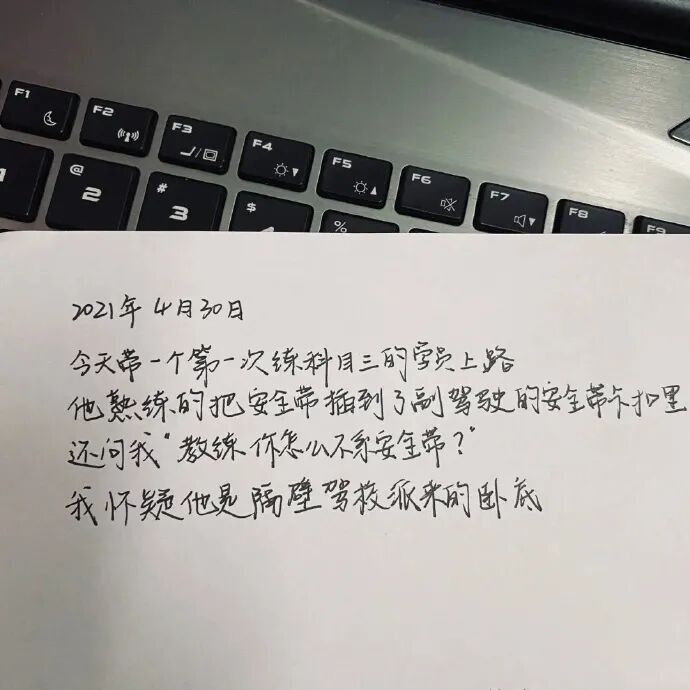 F1
F2
F3
F4
F5
F6
F7
F8
F9
1
@
2
#
3
$
%
2021年4月30日
今天带一个第一次练科目三的学员上路
他熟练的把安全带插到了副驾驶的安全带卡扣里
还问我“教练你怎么不系安全带？”
我怀疑他是隔壁驾校派来的卧底